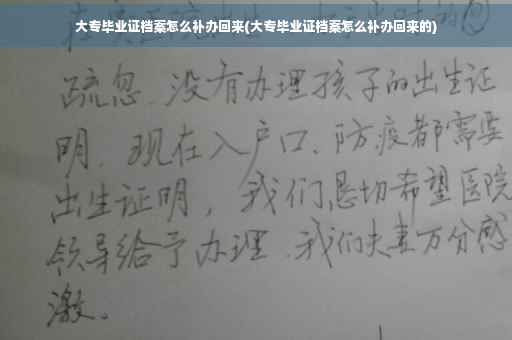 大专毕业证档案怎么补办回来(大专毕业证档案怎么补办回来的)
疏忽、没有办理孩子的出生证
明、现在入户口、防疫都需要
出生证明，我们恳切希望医院
领导给予办理、我们夫妻万分感
激。